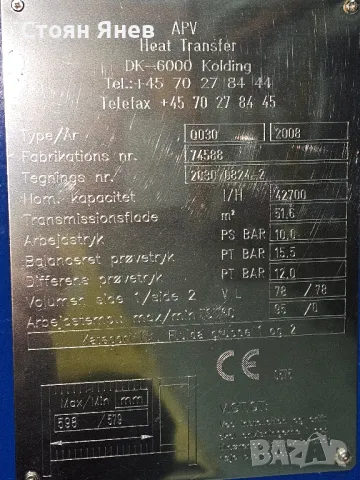 Стоян Янев
APV
Heat Transfer
DK-6000 Kolding
Tel.:+45 70 27 84 44
Telefax +45 70 27 84 45
Type/År Q030 2008
Fabrikations nr. 74588
Tegnings nr. 2030 0824-2
Nom. kapacitet l/H 42700
Transmissionsflade m² 51.6
Arbejdstryk PS BAR 10.0
Balanceret prøvetryk PT BAR 15.5
Differens prøvetryk PT BAR 12.0
Volumen side 1/side 2 V L 78 /78
Arbejdstemp. max/min 95 /0
Fluida gruppe 1 og 2
CE
Max/Min mm
598 /579
BAZAR
bg